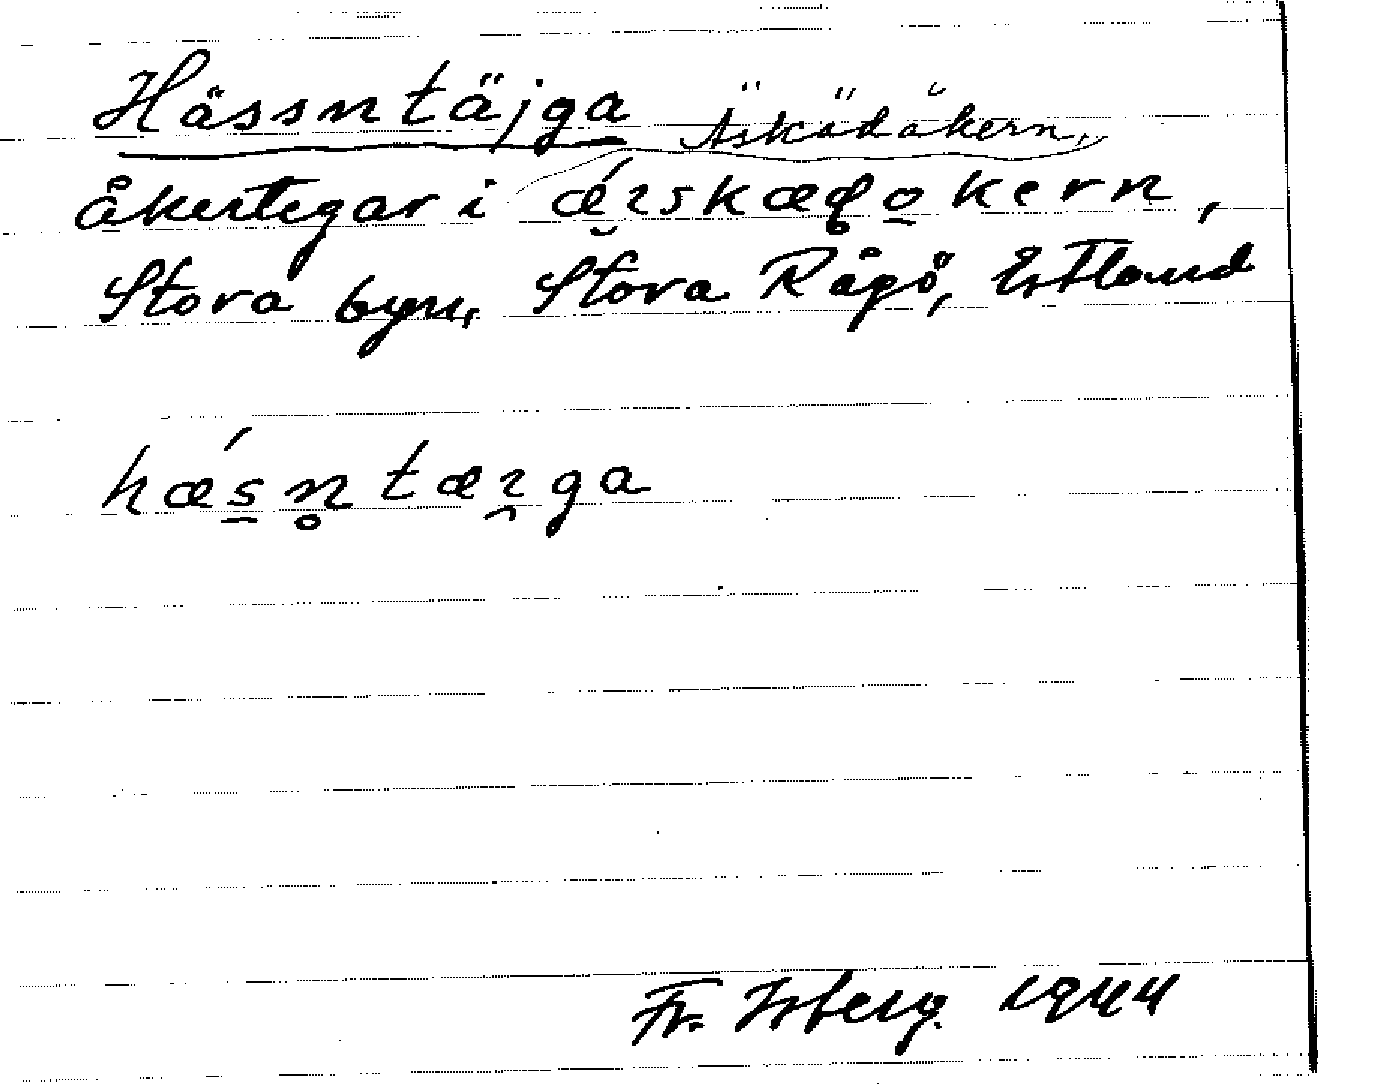 Hässntäjga Äskädåkern,
åkertegar i ǽɪskædo̲kern,
Stora byn, Stora Rågö, Estland
hǽs̲n̥tæɪ̯ga
Fr. Isberg. 1944